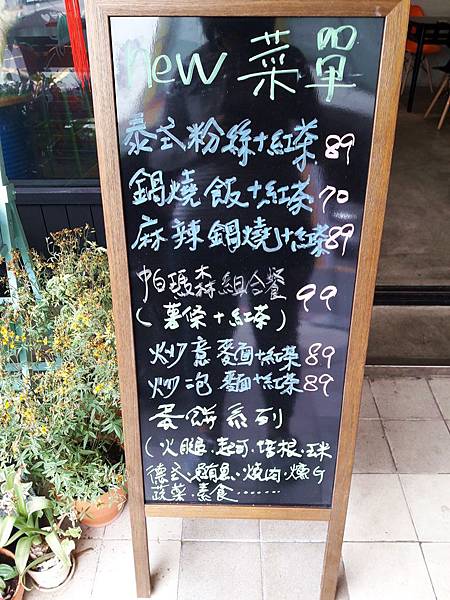 new 菜單
泰式粉絲+紅茶 89
鍋燒飯+紅茶 70
麻辣鍋燒+紅茶 89
帕瑪森組合餐 99
(薯條+紅茶)
炒意麵+紅茶 89
炒泡麵+紅茶 89
蛋餅系列
(火腿.起司.培根.玉米
德式.鮪魚.燒肉.燻G
蔬菜.素食......